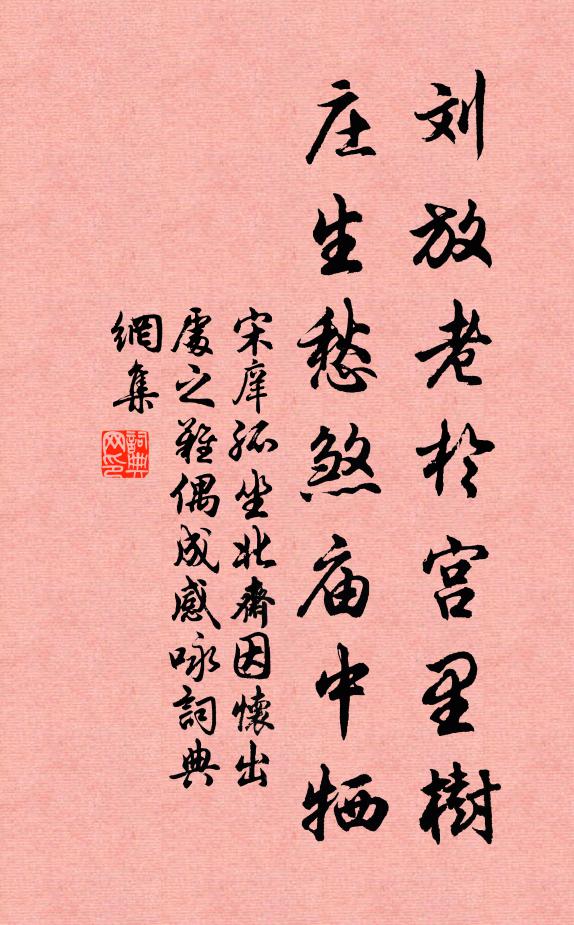 刘放老於宫里樹
庄生愁煞庙中牺
宋庠孤坐北齋因懷出
處之難偶成感咏詞典
網集
詞典网印